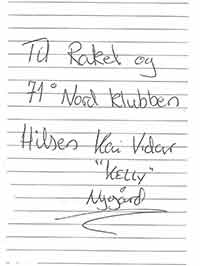 Til Raket og
71° Nord klubben
Hilsen Kai Vidar
"KELLY"
Nygård